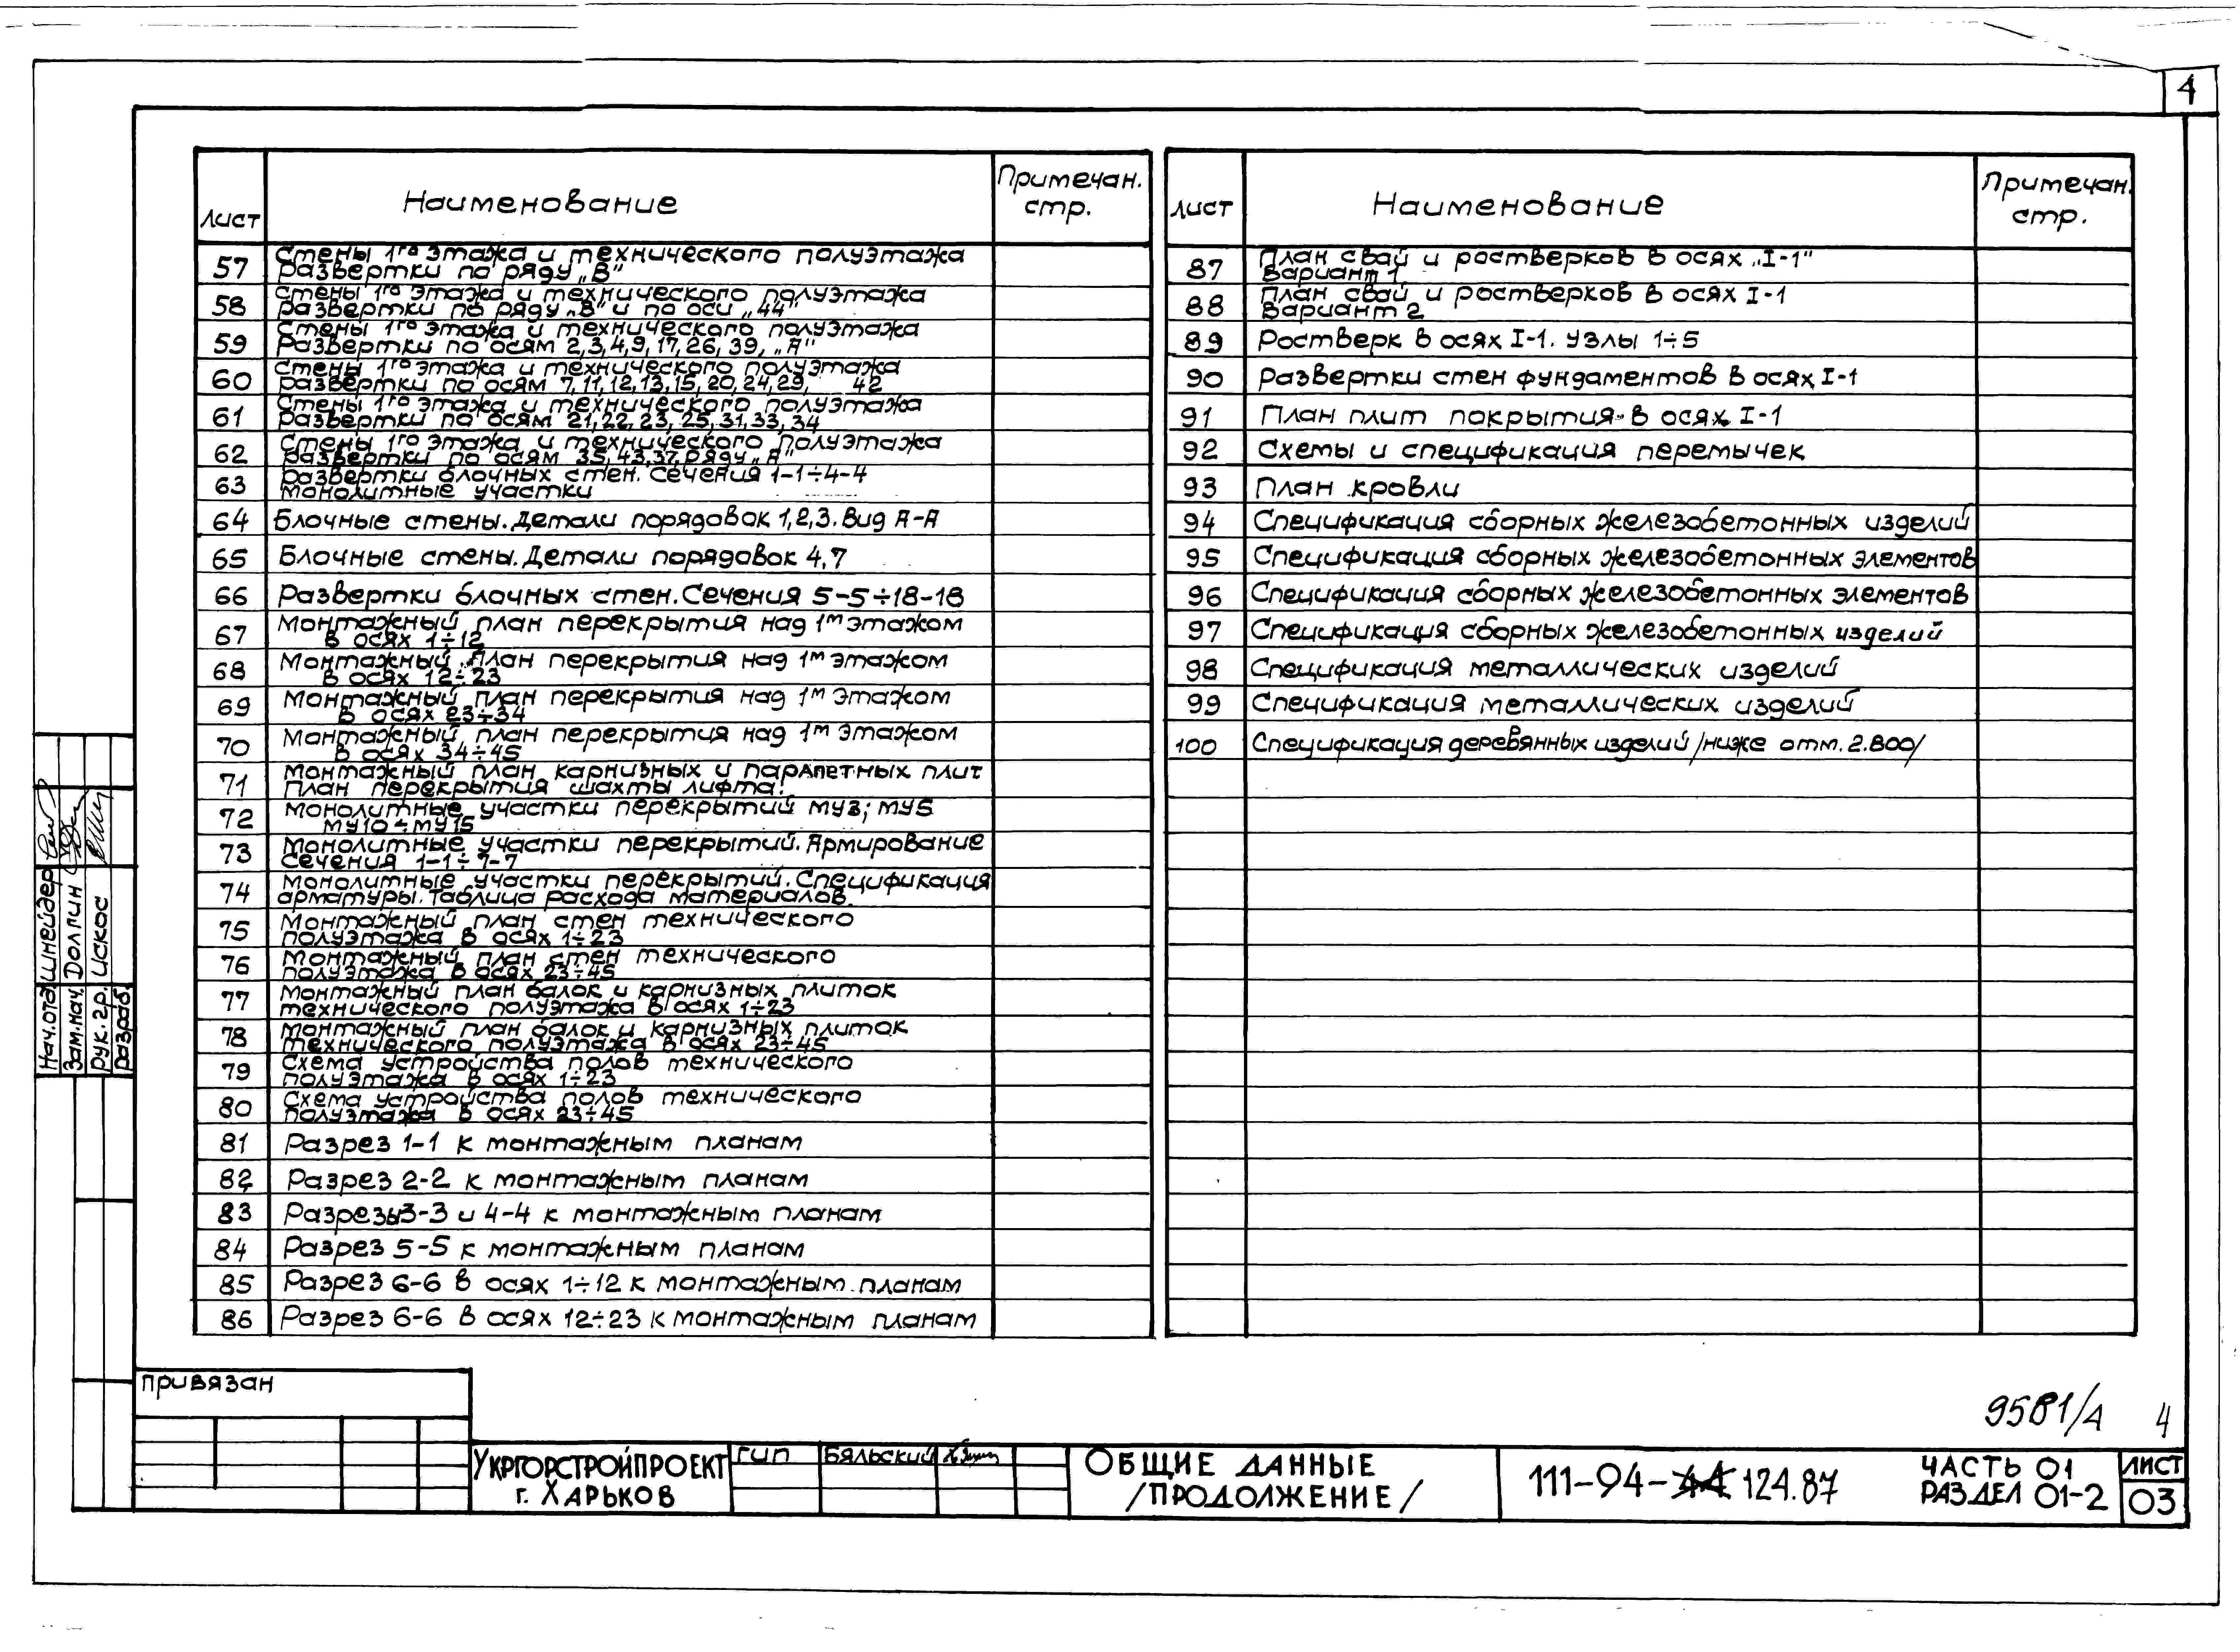 4
Лист Наименование Примечан. стр.
57 Стены 1го этажа и технического полуэтажа
Развертки по ряду „В"
58 Стены 1го этажа и технического полуэтажа
Развертки по ряду „В" и по оси „44"
59 Стены 1го этажа и технического полуэтажа
Развертки по осям 2,3,4,9,17,26,39, „А"
60 Стены 1го этажа и технического полуэтажа
Развертки по осям 7,11,12,13,15,20,24,29, 42
61 Стены 1го этажа и технического полуэтажа
Развертки по осям 21,22,23,25,31,33,34
62 Стены 1го этажа и технического полуэтажа
Развертки по осям 35,43,37, ряду „А"
63 Развертки блочных стен. Сечения 1-1÷4-4
Монолитные участки
64 Блочные стены. Детали порядовок 1,2,3. Вид А-А
65 Блочные стены. Детали порядовок 4,7
66 Развертки блочных стен. Сечения 5-5÷18-18
67 Монтажный план перекрытия над 1м этажом
в осях 1÷12
68 Монтажный план перекрытия над 1м этажом
в осях 12÷23
69 Монтажный план перекрытия над 1м этажом
в осях 23÷34
70 Монтажный план перекрытия над 1м этажом
в осях 34÷45
71 Монтажный план карнизных и парапетных плит
План перекрытия шахты лифта.
72 Монолитные участки перекрытий МУ3; МУ5
МУ10÷МУ15
73 Монолитные участки перекрытий. Армирование
Сечения 1-1÷7-7
74 Монолитные участки перекрытий. Спецификация
арматуры. Таблица расхода материалов.
75 Монтажный план стен технического
полуэтажа в осях 1÷23
76 Монтажный план стен технического
полуэтажа в осях 23÷45
77 Монтажный план балок и карнизных плиток
технического полуэтажа в осях 1÷23
78 Монтажный план балок и карнизных плиток
технического полуэтажа в осях 23÷45
79 Схема устройства полов технического
полуэтажа в осях 1÷23
80 Схема устройства полов технического
полуэтажа в осях 23÷45
81 Разрез 1-1 к монтажным планам
82 Разрез 2-2 к монтажным планам
83 Разрезы 3-3 и 4-4 к монтажным планам
84 Разрез 5-5 к монтажным планам
85 Разрез 6-6 в осях 1÷12 к монтажным планам
86 Разрез 6-6 в осях 12÷23 к монтажным планам
Лист Наименование Примечан. стр.
87 План свай и ростверков в осях „I-1"
Вариант 1
88 План свай и ростверков в осях I-1
Вариант 2
89 Ростверк в осях I-1. Узлы 1÷5
90 Развертки стен фундаментов в осях I-1
91 План плит покрытия в осях I-1
92 Схемы и спецификация перемычек
93 План кровли
94 Спецификация сборных железобетонных изделий
95 Спецификация сборных железобетонных элементов
96 Спецификация сборных железобетонных элементов
97 Спецификация сборных железобетонных изделий
98 Спецификация металлических изделий
99 Спецификация металлических изделий
100 Спецификация деревянных изделий /ниже отм. 2.800/
Нач.отд. Шнейдер
Зам.нач. Долгин
Рук.гр. Искос
Разраб.
Привязан
9581/А 4
Укргорстройпроект
г. Харьков
ГИП Бяльский
Общие данные
/продолжение/
111-94- 124.87
Часть 01
Раздел 01-2
Лист
03